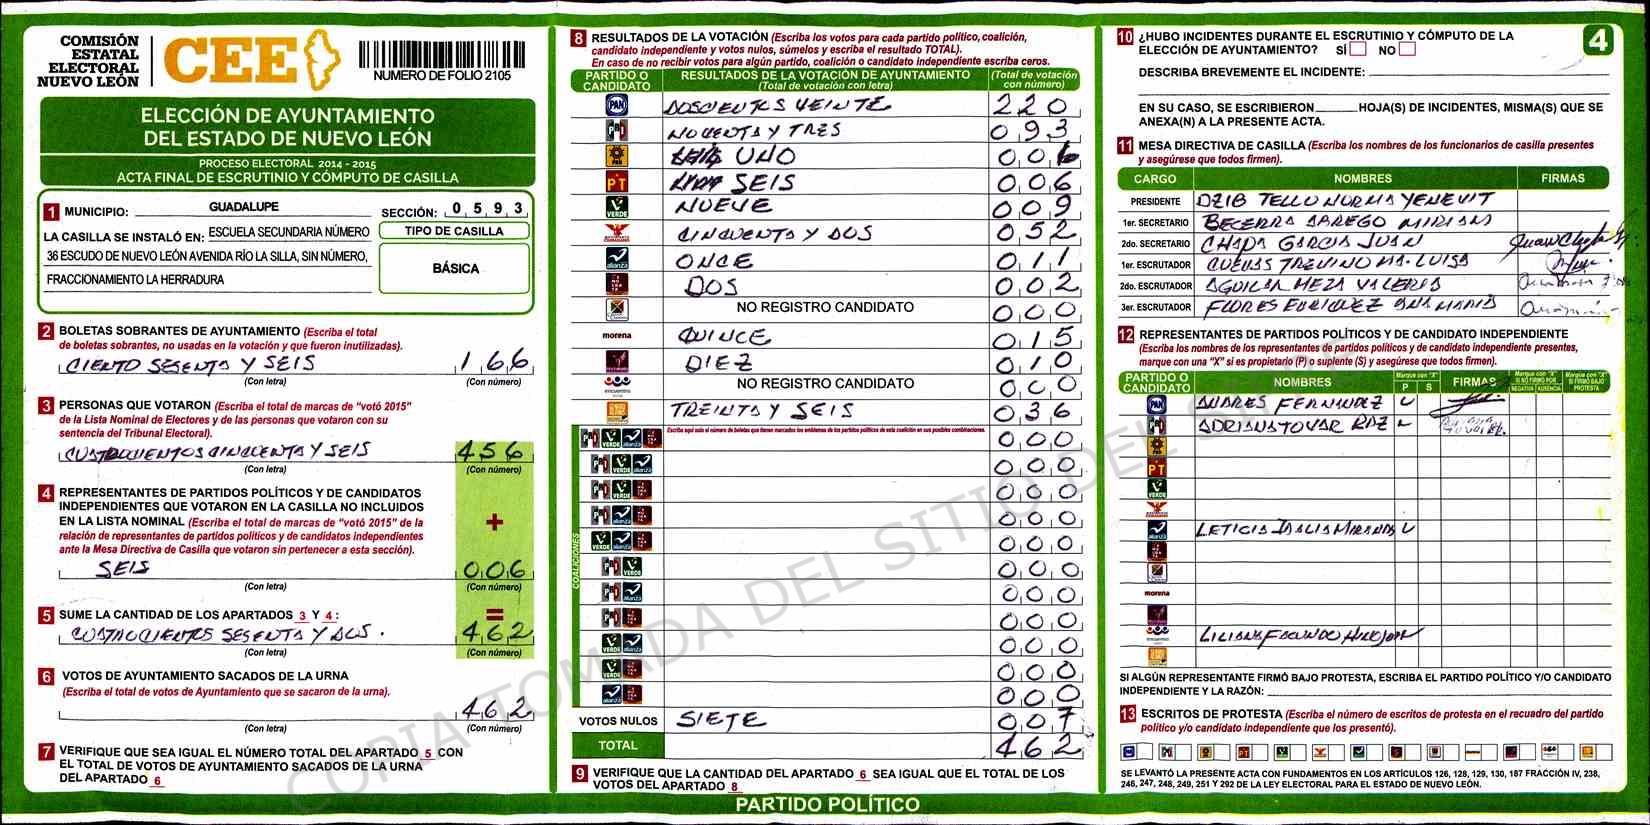 COMISIÓN
ESTATAL
ELECTORAL
NUEVO LEÓN
CEE
NUMERO DE FOLIO 2105
ELECCIÓN DE AYUNTAMIENTO
DEL ESTADO DE NUEVO LEÓN
PROCESO ELECTORAL 2014 - 2015
ACTA FINAL DE ESCRUTINIO Y CÓMPUTO DE CASILLA
1 MUNICIPIO: GUADALUPE SECCIÓN: 0 5 9 3
LA CASILLA SE INSTALÓ EN: ESCUELA SECUNDARIA NÚMERO
36 ESCUDO DE NUEVO LEÓN AVENIDA RÍO LA SILLA, SIN NÚMERO,
FRACCIONAMIENTO LA HERRADURA
TIPO DE CASILLA
BÁSICA
2 BOLETAS SOBRANTES DE AYUNTAMIENTO (Escriba el total
de boletas sobrantes, no usadas en la votación y que fueron inutilizadas).
CIENTO SESENTA Y SEIS 1 6 6
(Con letra) (Con número)
3 PERSONAS QUE VOTARON (Escriba el total de marcas de "votó 2015"
de la Lista Nominal de Electores y de las personas que votaron con su
sentencia del Tribunal Electoral).
CUATROCIENTOS CINCUENTA Y SEIS 4 5 6
(Con letra) (Con número)
4 REPRESENTANTES DE PARTIDOS POLÍTICOS Y DE CANDIDATOS
INDEPENDIENTES QUE VOTARON EN LA CASILLA NO INCLUIDOS
EN LA LISTA NOMINAL (Escriba el total de marcas de "votó 2015" de la
relación de representantes de partidos políticos y de candidatos independientes
ante la Mesa Directiva de Casilla que votaron sin pertenecer a esta sección).
+
SEIS 0 0 6
(Con letra) (Con número)
5 SUME LA CANTIDAD DE LOS APARTADOS 3 Y 4 : =
CUATROCIENTOS SESENTA Y DOS. 4 6 2
(Con letra) (Con número)
6 VOTOS DE AYUNTAMIENTO SACADOS DE LA URNA
(Escriba el total de votos de Ayuntamiento que se sacaron de la urna).
4 6 2
(Con letra) (Con número)
7 VERIFIQUE QUE SEA IGUAL EL NÚMERO TOTAL DEL APARTADO 5 CON
EL TOTAL DE VOTOS DE AYUNTAMIENTO SACADOS DE LA URNA
DEL APARTADO 6
8 RESULTADOS DE LA VOTACIÓN (Escriba los votos para cada partido político, coalición,
candidato independiente y votos nulos, súmelos y escriba el resultado TOTAL).
En caso de no recibir votos para algún partido, coalición o candidato independiente escriba ceros.
PARTIDO O CANDIDATO RESULTADOS DE LA VOTACIÓN DE AYUNTAMIENTO (Total de votación con letra) (Total de votación con número)
PAN DOSCIENTOS VEINTE 2 2 0
PRI NOVENTA Y TRES 0 9 3
PRD UNO 0 0
PT SEIS 0 0 6
VERDE NUEVE 0 0 9
CINCUENTA Y DOS 0 5 2
alianza ONCE 0 1 1
DOS 0 0 2
NO REGISTRO CANDIDATO 0 0 0
morena QUINCE 0 1 5
DIEZ 0 1 0
NO REGISTRO CANDIDATO 0 0 0
TREINTA Y SEIS 0 3 6
COALICIONES
Escriba aquí solo el número de boletas que tienen marcados los emblemas de los partidos políticos de esta coalición en sus posibles combinaciones.
PRI VERDE alianza 0 0 0
PRI VERDE alianza 0 0 0
PRI VERDE 0 0 0
PRI alianza 0 0 0
VERDE alianza 0 0 0
PRI VERDE 0 0 0
PRI alianza 0 0 0
PRI 0 0 0
VERDE alianza 0 0 0
VERDE 0 0 0
alianza 0 0 0
VOTOS NULOS SIETE 0 0 7
TOTAL 4 6 2
9 VERIFIQUE QUE LA CANTIDAD DEL APARTADO 6 SEA IGUAL QUE EL TOTAL DE LOS
VOTOS DEL APARTADO 8
PARTIDO POLÍTICO
4
10 ¿HUBO INCIDENTES DURANTE EL ESCRUTINIO Y CÓMPUTO DE LA
ELECCIÓN DE AYUNTAMIENTO? SÍ NO
DESCRIBA BREVEMENTE EL INCIDENTE:
EN SU CASO, SE ESCRIBIERON HOJA(S) DE INCIDENTES, MISMA(S) QUE SE
ANEXA(N) A LA PRESENTE ACTA.
11 MESA DIRECTIVA DE CASILLA (Escriba los nombres de los funcionarios de casilla presentes
y asegúrese que todos firmen).
CARGO NOMBRES FIRMAS
PRESIDENTE DZIB TELLO NORMA YENEVIT
1er. SECRETARIO BECERRA ABREGO MIRIAM
2do. SECRETARIO CHAPA GARCIA JUAN
1er. ESCRUTADOR CUEVAS TREVINO MA. LUISA
2do. ESCRUTADOR AGUILAR MEZA VALERIA
3er. ESCRUTADOR FLORES ENRIQUEZ ANA MARIA
12 REPRESENTANTES DE PARTIDOS POLÍTICOS Y DE CANDIDATO INDEPENDIENTE
(Escriba los nombres de los representantes de partidos políticos y de candidato independiente presentes,
marque con una "X" si es propietario (P) o suplente (S) y asegúrese que todos firmen).
PARTIDO O CANDIDATO NOMBRES Marque con "X" P S FIRMAS Marque con "X" SI NO FIRMÓ POR: NEGATIVA AUSENCIA Marque con "X" SI FIRMÓ BAJO PROTESTA
PAN ANDRES FERNANDEZ
PRI ADRIANA TOVAR
PRD
PT
VERDE
alianza LETICIA IDALIA MIRANDA
morena
LILIANA FACUNDO HINOJOSA
SI ALGÚN REPRESENTANTE FIRMÓ BAJO PROTESTA, ESCRIBA EL PARTIDO POLÍTICO Y/O CANDIDATO
INDEPENDIENTE Y LA RAZÓN:
13 ESCRITOS DE PROTESTA (Escriba el número de escritos de protesta en el recuadro del partido
político y/o candidato independiente que los presentó).
SE LEVANTÓ LA PRESENTE ACTA CON FUNDAMENTOS EN LOS ARTÍCULOS 126, 128, 129, 130, 187 FRACCIÓN IV, 238,
246, 247, 248, 249, 251 Y 292 DE LA LEY ELECTORAL PARA EL ESTADO DE NUEVO LEÓN.
COPIA TOMADA DEL SITIO DEL SIPRE